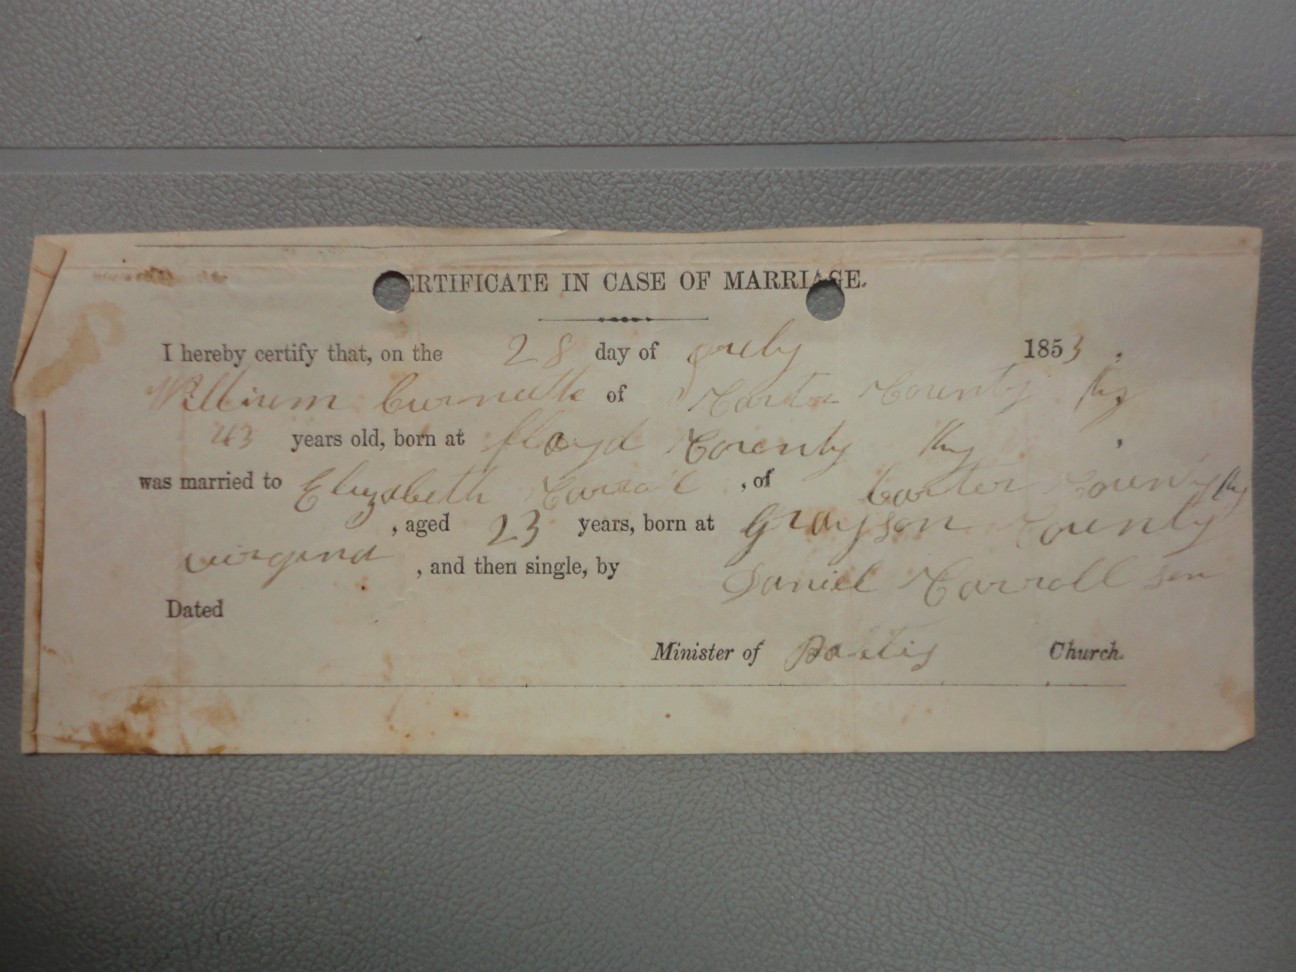 ERTIFICATE IN CASE OF MARRIAGE.
I hereby certify that, on the 28 day of july 1853 .
William Curnutte of Carter County Ky
43 years old, born at floyd County Ky ,
was married to Elizabeth Carrol , of Carter County Ky
, aged 23 years, born at Grayson County
virgina , and then single, by Daniel Carroll sen
Dated
Minister of Church.